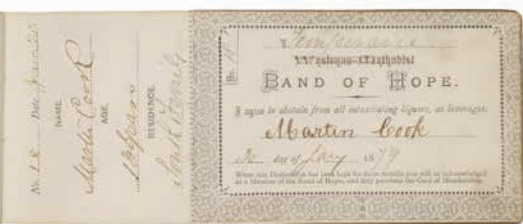 No. 18 Date
NAME.
Martin Cook
AGE.
13 Years
RESIDENCE.
No. 18
Temperance
Wesleyan Methodist
BAND OF HOPE.
I agree to abstain from all intoxicating liquors, as beverages.
Martin Cook
day of Jany 1879
When this Declaration has been kept for months you will be acknowledged
as a Member of the Band of Hope, and may purchase the Card of Membership.